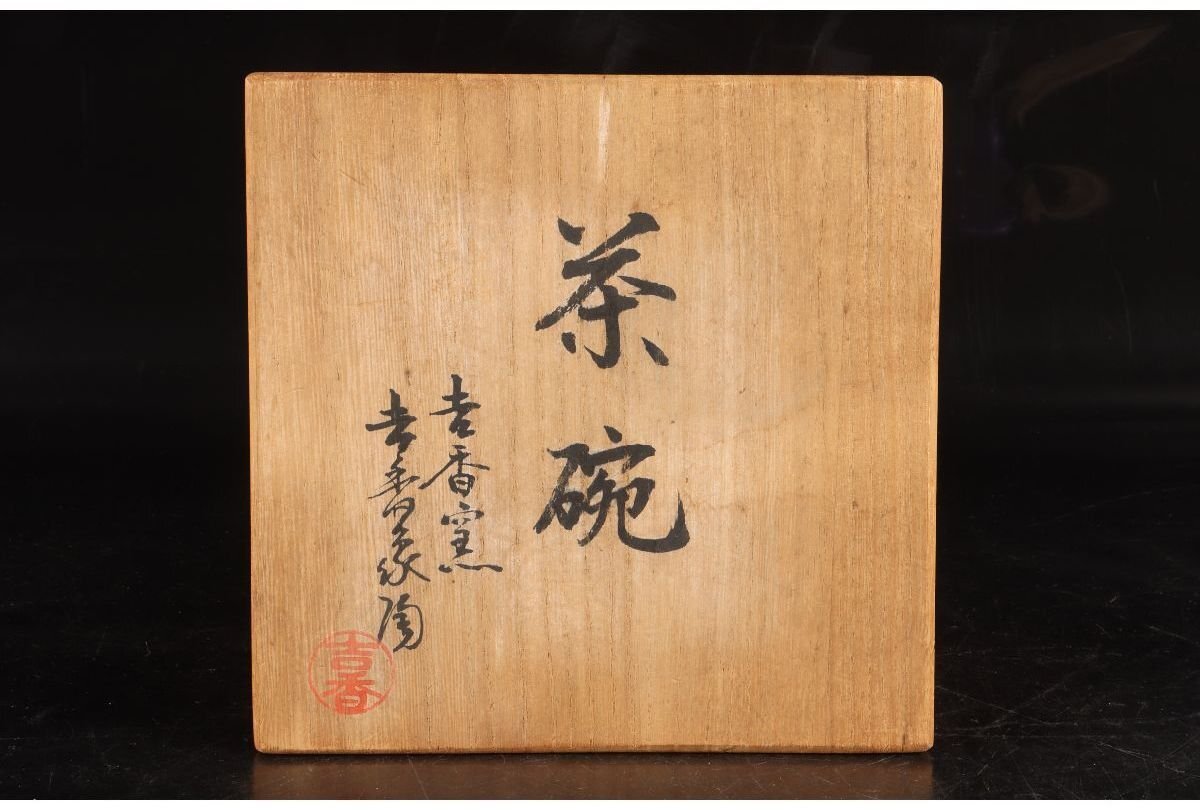 茶碗
吉香窯
吉香
陶
吉香